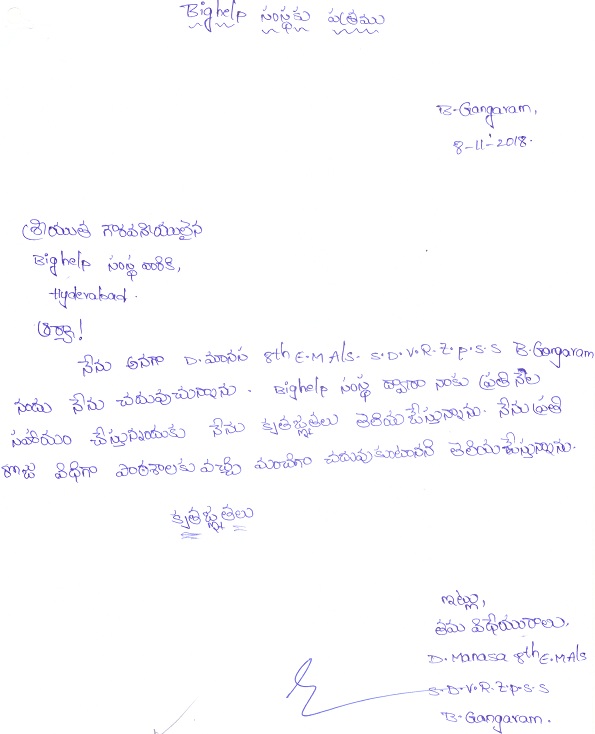 Bighelp సంస్థకు పత్రము
B. Gangaram,
8-11-2018.
శ్రీయుత గౌరవనీయులైన
Bighelp సంస్థ వారికి,
Hyderabad.
ఆర్యా!
నేను అనగా D. మానస 8th E.M A/s. S.D.V.R.Z.P.S.S B. Gangaram
నందు నేను చదువుచున్నాను. Bighelp సంస్థ ద్వారా నాకు ప్రతి నెల
సహాయం చేస్తున్నందుకు నేను కృతజ్ఞతలు తెలియచేస్తున్నాను. నేను ప్రతి
రోజు విధిగా పాఠశాలకు వచ్చి మంచిగా చదువుకుంటానని తెలియచేస్తున్నాను.
కృతజ్ఞతలు
ఇట్లు,
తమ విధేయురాలు,
D. Manasa 8th E.M A/s
S.D.V.R.Z.P.S.S
B. Gangaram.